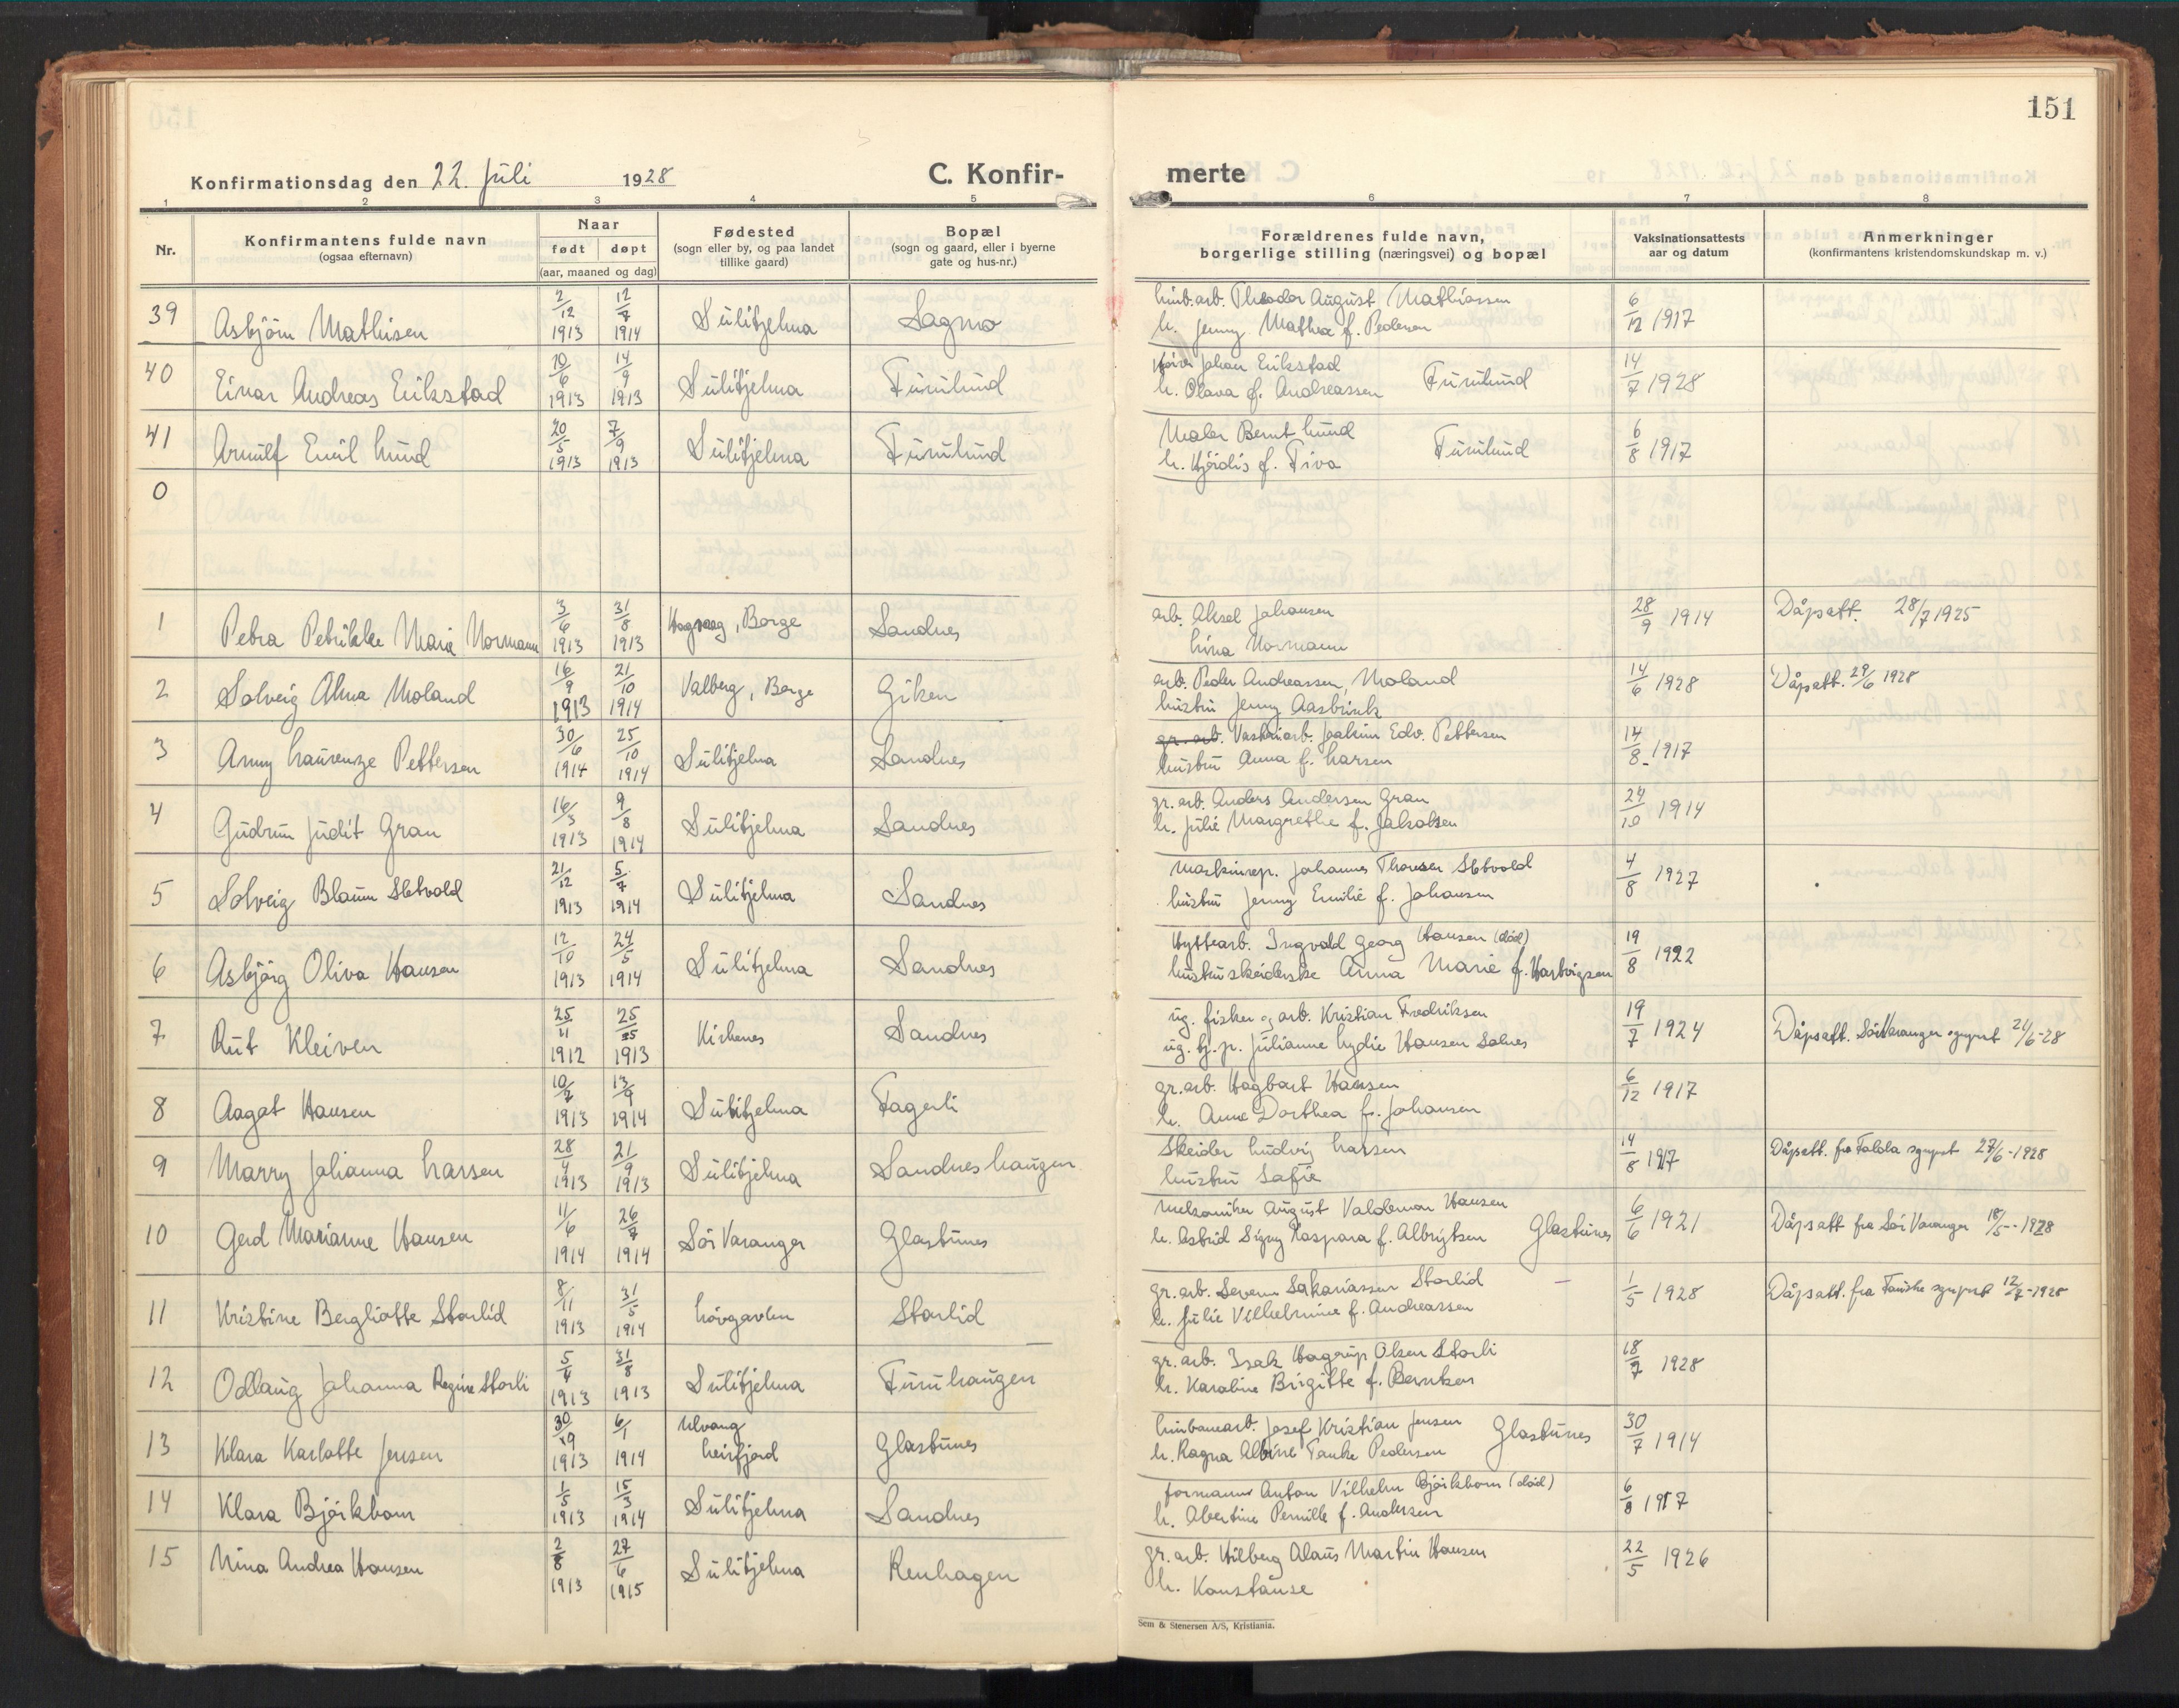 151
Konfirmationsdag den 22. Juli 1928 C. Konfir- merte
1 2 3 4 5 6 7 8
Nr. Konfirmantens fulde navn (ogsaa efternavn) Naar født døpt (aar, maaned og dag) Fødested (sogn eller by, og paa landet tillike gaard) Bopæl (sogn og gaard, eller i byerne gate og hus-nr.) Forældrenes fulde navn, borgerlige stilling (næringsvei) og bopæl Vaksinationsattests aar og datum Anmerkninger (konfirmantens kristendomskundskap m. v.)
39 Asbjörn Mathisen 2/12 1913 12/7 1914 Sulitjelma Sagmo linb.arb. Theodor August Mathiassen 6/12 1917
h. Jenny Mathea f. Pedersen
40 Einar Andreas Erikstad 10/6 1913 14/9 1913 Sulitjelma Furulund Johan Erikstad Furulund 14/7 1928
h. Olava f. Andreassen
41 Arnulf Emil Lund 20/5 1913 7/9 1913 Sulitjelma Furulund Maler Bernt Lund Furulund 6/8 1917
h. Hjördis f. Tiva
0
1 Petra Petrikke Marie Normann 3/6 1913 31/8 1913 Borge Sandnes arb. Aksel Johansen 28/9 1914 Dåpsatt. 28/7 1925
Lina Normann
2 Solveig Alma Moland 16/9 1913 21/10 1914 Valberg, Borge Giken arb. Peder Andreassen Moland 14/6 1928 Dåpsatt. 29/6 1928
hustru Jenny Aasbrink
3 Anny Laurenze Pettersen 30/6 1914 25/10 1914 Sulitjelma Sandnes gr. arb. Vaskeriarb. Joakim Edv. Pettersen 14/8 1917
hustru Anna f. Larsen
4 Gudrun Judit Gran 16/3 1913 9/8 1914 Sulitjelma Sandnes gr. arb. Anders Andersen Gran 24/10 1914
h. Julie Margrethe f. Jakobsen
5 Solveig Blaum Sletvold 21/12 1913 5/7 1914 Sulitjelma Sandnes Maskinrep. Johannes Thoresen Sletvold 4/8 1927
hustru Jenny Emilie f. Johansen
6 Asbjörg Oliva Hansen 12/10 1913 24/5 1914 Sulitjelma Sandnes Hyttearb. Ingvald Georg Hansen (död) 19/8 1922
hustru skeiderske Anna Marie f. Hartvigsen
7 Rut Kleiven 25/11 1912 25/5 1913 Kirkenes Sandnes ug. fisker og arb. Kristian Fredriksen 19/7 1924 Dåpsatt. Sör Varanger sgnprst 21/6-28
ug. tj.p. Julianne Lydie Hansen Solnes
8 Aagot Hansen 10/7 1913 13/9 1914 Sulitjelma Fagerli gr. arb. Hagbart Hansen 6/12 1917
h. Anne Dorthea f. Johansen
9 Marry Johanna Larsen 28/4 1913 21/9 1913 Sulitjelma Sandneshaugen Skeider Ludvig Larsen 14/8 1917 Dåpsatt. fra Foldda sgnprst 27/6-1928
hustru Sofie
10 Gerd Marianne Hansen 11/6 1914 26/7 1914 Sör Varanger Glastunes Mekaniker August Valdemar Hansen 6/6 1921 Dåpsatt fra Sör Varanger 18/5-1928
h. Astrid Signy Kaspara f. Albrigtsen Glastunes
11 Kristine Bergliotte Storlid 8/11 1913 31/5 1914 Lövgavlen Storlid gr. arb. Severin Sakariassen Storlid – 1/5 1928 Dåpsatt. fra Fauske sgnprst 12/7-1928
h. Julie Vilhelmine f. Andreassen
12 Odlaug Johanna Regine Storli 5/4 1913 31/8 1913 Sulitjelma Furuhaugen gr. arb. Isak Hagerup Olsen Storli 18/7 1928
h. Karoline Birgitte f. Berntsen
13 Klara Karlotte Jensen 30/9 1913 6/1 1914 Ulvang Leirfjord Glastunes linbanearb. Josef Kristian Jensen Glastunes 30/7 1914
h. Ragna Albine Tanke Pedersen
14 Klara Björkbom 1/5 1913 15/3 1914 Sulitjelma Sandnes formann Anton Vilhelm Björkbom (död) 6/8 1917
h. Abertine Pernille f. Andersen
15 Nina Andrea Hansen 2/8 1913 27/6 1915 Sulitjelma Renhagen gr. arb. Hilberg Olaus Martin Hansen 22/5 1926
h. Konstanse
Sem & Stenersen A/S, Kristiania.